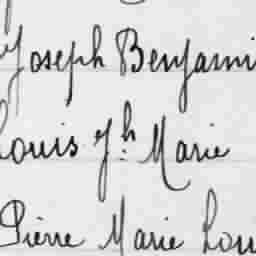 Joseph Benjami
Louis Jh. Marie
Pierre Marie Lou